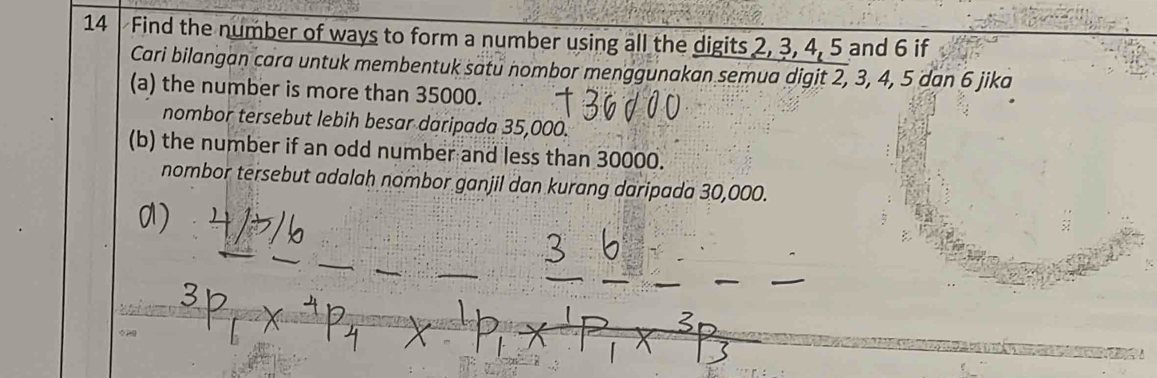 14 Find the number of ways to form a number using all the digits 2, 3, 4, 5 and 6 if
Cari bilangan cara untuk membentuk satu nombor menggunakan semua digit 2, 3, 4, 5 dan 6 jika
(a) the number is more than 35000.
+36000
nombor tersebut lebih besar daripada 35,000.
(b) the number if an odd number and less than 30000.
nombor tersebut adalah nombor ganjil dan kurang daripada 30,000.
a) 4/5/6
3 6
³P₁ × ⁴P₄ × ¹P₁ × ¹P₁ × ³P₃